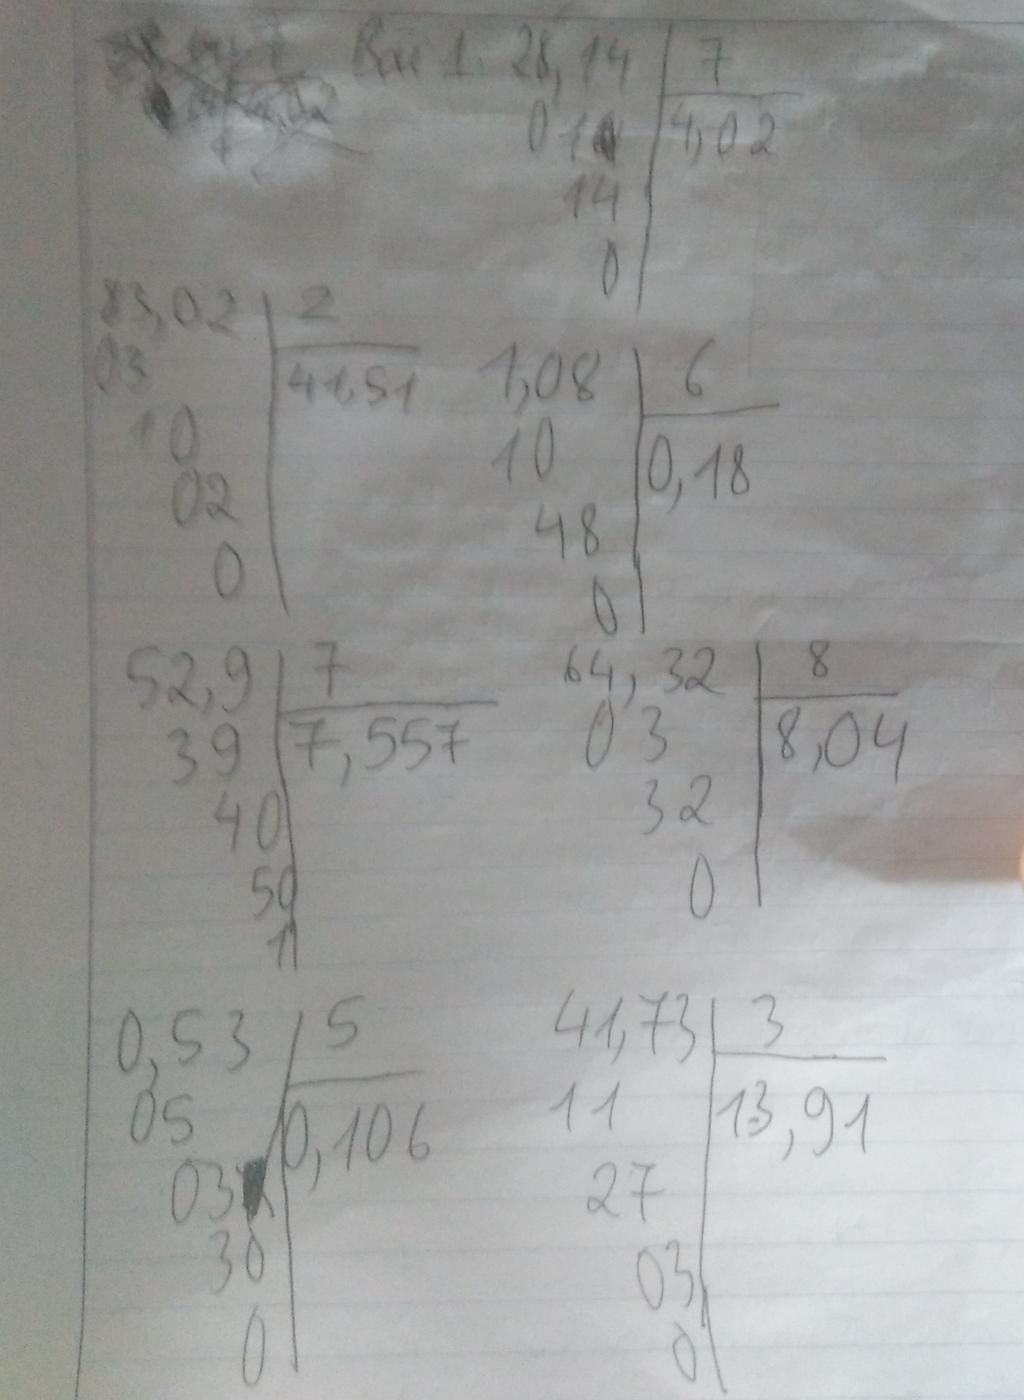 Bài 1. 28,14 7
01 4,02
14
0
83,02 2
03 41,51
10
02
0
1,08 6
10 0,18
48
0
52,9 7
39 7,557
40
50
1
64,32 8
03 8,04
32
0
0,53 5
05 0,106
03
30
0
41,73 3
11 13,91
27
03
0